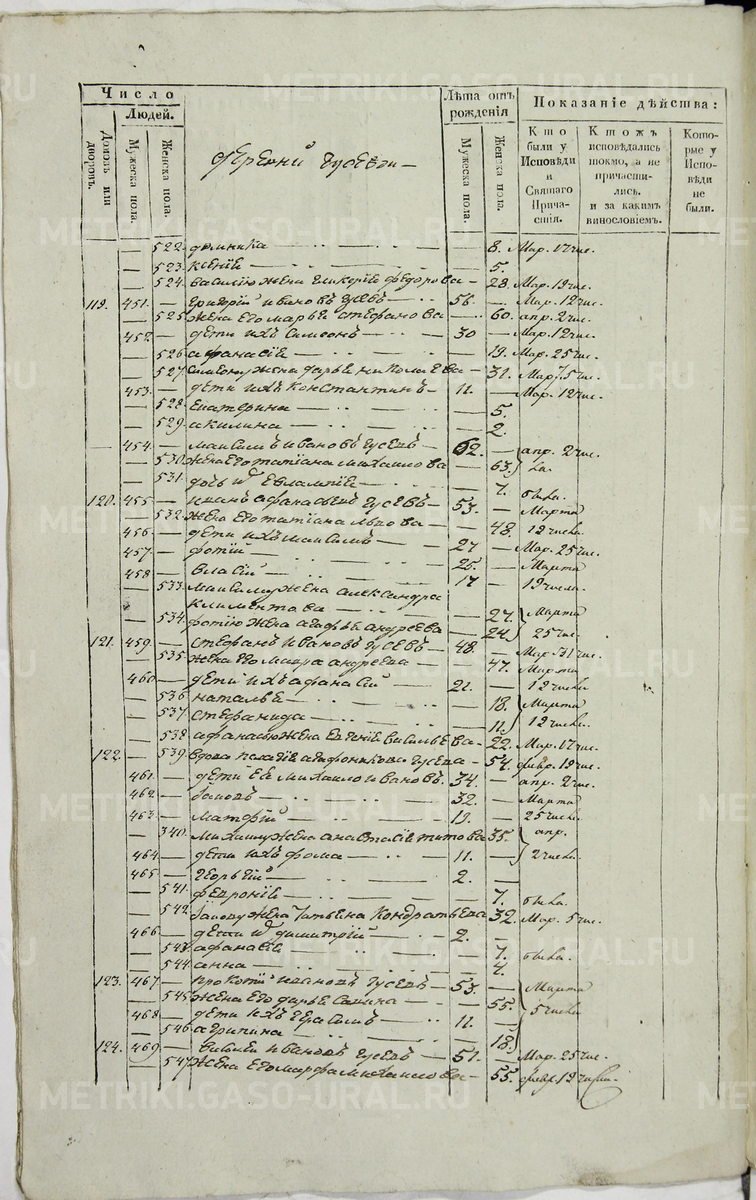 Число
Людей.
Лѣта отъ рожденія
Показаніе дѣйства:
Домовъ или дворовъ.
Мужеска пола.
Женска пола.
Мужеска пола.
Женска пола.
Кто были у Исповѣди и Святаго Причастія.
Ктожъ исповѣдались токмо, а не причастились. и за какимъ винословіемъ.
Которые у Исповѣди не были.
— 522. — 8. Мар. 17 чис.
— 523. Ксенiѣ — 5.
— 524. Василiю жена Гликерiѣ Федорова — 28. Мар. 19 чис.
119. 451. — Григорiй Ивановъ Гусевъ — 56. — Мар. 12 чис.
— 525. жена его Марьѣ Стефанова — 60. апр. 2 чис.
452. — дети ихъ Симеонъ — 30 — Мар. 12 чис.
— 526. афанасiѣ — 19. Мар. 25 чис.
— 527. Симеону жена Дарьѣ Николаева — 31. Мар. 5 чис.
453. — дети ихъ Константинъ — 11. — Мар. 12 чис.
— 528. Екатерина — 5.
— 529. акилина — 2.
454. — Максимъ Ивановъ Гусевъ — 62. — апр. 2 чис.
— 530. жена его татiана Михайлова — 63.
— 531. дочь их Евлампiѣ — 7.
120. 455. — афанасьевъ Гусевъ — 53. — Марта
— 532. жена его татiана Львова — 48. 12 числа
456. — дети ихъ Максимъ — 27 — Мар. 25 чис.
457. — фотiй — 25. — Марта
458 — власiй — 17 — 19 числ.
533. Максиму жена александра
Климентова — 27. Марта
— 534. фотiю жена агафьѣ андреева — 24. 25 чис.
121. 459. — Стефанъ Ивановъ Гусевъ — 48. — Мар. 31 чис.
— 535. жена его Мавра андреева — 47. Марта
460. — дети ихъ афанасiй — 21. — 12 числа
— 536 натальѣ — 18. Марта
— 537. стефанида — 11. 12 числа
— 538. афанасью жена Евгенiѣ васильева — 22. Мар. 17 чис.
122. — 539. вдова Гусева — 54. февр. 19 чис.
461. — дети Еѣ Михайло Ивановъ. 34. — апр. 2 чис.
462. — — 32. — Марта
463. — — 19. — 25 числа
— 540. Михайлу жена анастасiѣ титова 35. апр.
464. — дети ихъ фома — 11. — 2 числа.
465 — Георьгiй — 2. —
— 541. февронiѣ — 7.
— 542. жена татьѣна Кондратьева 32. Мар. 5 чис.
466. — дети их димитрiй — 2. —
— 543. афанасiѣ — 7.
— 544. анна — 4.
123. 467. — Ивановъ Гусевъ — 53. — Марта
— 545. жена его дарьѣ Савина — 55. 5 числа
468 — дети ихъ герасимъ — 11. —
— 546. агрипина — 18.
124. 469. — Ивановъ Гусевъ — 51. — Мар. 25 чис.
— 547. жена его Марфа Михайлова — 55. февр. 19 числ.
METRIKI.GASO-URAL.RU